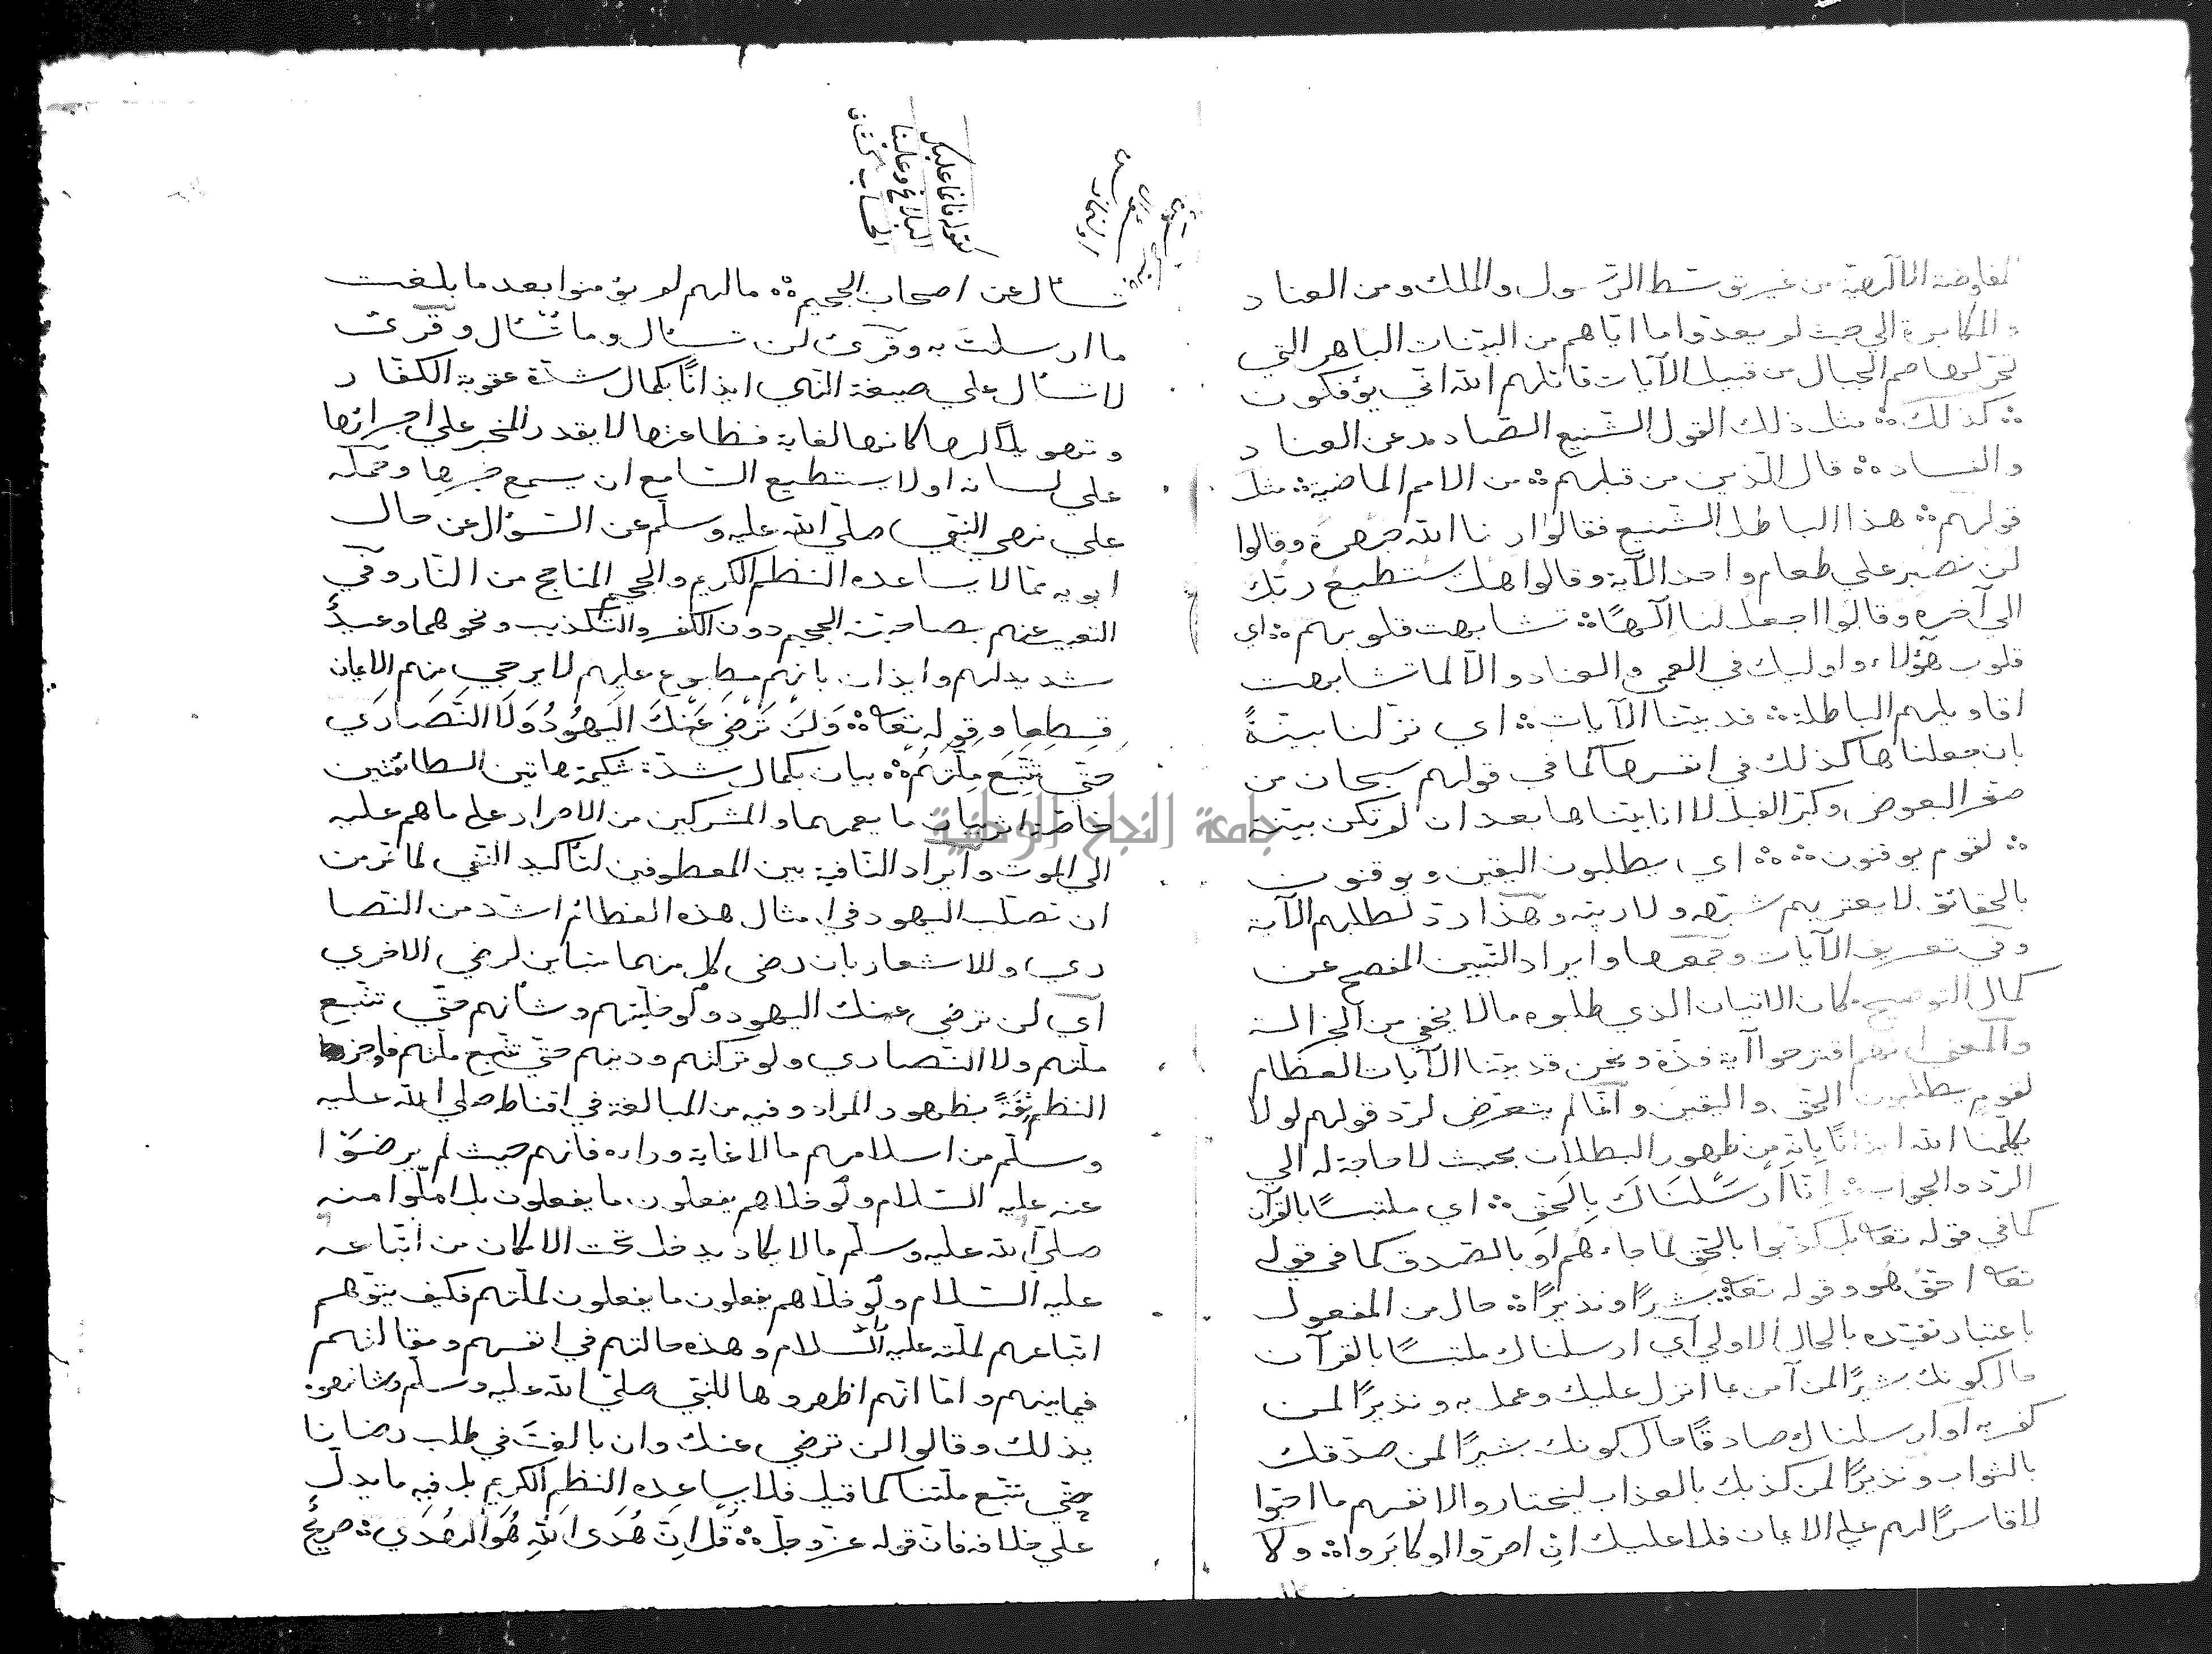 المفاوضة الآلهية من غير توسط الرّسول والملك ومن العناد
والمكابرة الي حيث لم يعدّوا ما اتاهم من البيّنات الباهر التي
تخرّ لها صم الجبال من قبيل الآيات قاتلهم الله انّي يؤفكون
كذلك مثل ذلك القول الشنيع الصّادر عن العناد
والفساد قال الّذين من قبلهم من الامم الماضية مثل
قولهم هذا الباطل الشنيع فقالوا ارنا الله جهرة وقالوا
لن نصبر علي طعام واحد الآية وقالوا هل يستطيع ربّك
الي آخره وقالوا اجعل لنا آلهًا تشابهت قلوبهم اي
قلوب هؤلاء واوليك في العمى والعناد والّا لما تشابهت
اقاويلهم الباطلة قد بيّنا الآيات اي نزلنا بيّنةً
بان جعلناها كذلك في انفسها كما في قولهم سبحان من
صغر البعوض وكبّر الفيل لا انا بيّناها بعد ان لم تكن بيّنة
لقوم يوقنون اي يطلبون اليقين ويوقنون
بالحقائق لا يعتريهم شبهة ولا ريبة وهذا ردّ لطلبهم الآية
وفي تعريف الآيات وجمعها وايراد التبيين المفصح عن
كمال التوضيح مكان الاتيان الذي طلبوه ما لا يخفي من الجزالة
والمعني انهم اقترحوا آية فذّة ونحن قد بيّنا الآيات العظام
لقوم يطلبون الحق واليقين وانّما لم يتعرّض لردّ قولهم لولا
يكلّمنا الله ايذانًا بانّه من ظهور البطلان بحيث لا حاجة له الي
الرّد والجواب انّا أرسلناك بالحق اي ملتبسًا بالقرآن
كما في قوله تعا بل كذّبوا بالحق لما جاءهم او بالصّدق كما في قوله
تعا احقّ هو وقوله تعا بشيرًا ونذيرًا حال من المفعول
باعتبار تقيّده بالحال الاولي آي ارسلناك ملتبسًا بالقرآن
حال كونك بشيرًا لمن آمن بما انزل عليك وعمل به ونذيرًا لمن
كفر به او ارسلناك صادقًا حال كونك بشيرًا لمن صدّقك
بالثواب ونذيرًا لمن كذبك بالعذاب ليختاروا لانفسهم ما احبّوا
لا قاسرًا لهم علي الايمان فلا عليك ان اصرّوا او كابروا ولا
لقوله فانما عليك
البلاغ وعلينا
الحساب
تسأل عن اصحاب الجحيم ما لهم لم يؤمنوا بعد ما بلغت
ما ارسلت به وقرئ لن تسأل وما تُسأل وقرئ
لا تسأل علي صيغة النهي ايذانًا بكمال شدّة عقوبة الكفار
وتهويلاً لها كانها لغاية فظاعتها لا يقدر المخبر علي اجرائها
علي لسانه او لا يستطيع السّامع ان يسمع خبرها وحمله
علي نهي النبي صلّي الله عليه وسلّم عن السّؤال عن حال
ابويه ممّا لا يساعده النظم الكريم والجحيم المتأجج من النّار وفي
التعبير عنهم بصاحبيّة الجحيم دون الكفر والتكذيب ونحوهما وعيدٌ
شديد لهم وايذان بانهم مطبوع عليهم لا يرجي منهم الايمان
قطعا وقوله تعا وَلَن تَرْضَي عَنْكَ اليَهُودُ وَلَا النَّصَارَي
حتّي تتّبع ملّتهم بيان بكمال شدّة شكيمة هاتين الطائفتين
خاصّة اثر بيان ما يعمهما والمشركين من الاصرار علي ما هم عليه
الي الموت وايراد لا النّافية بين المعطوفين لتأكيد النّفي لما مرّ من
ان تصلّب اليهود في امثال هذه العظائم اشدّ من النصا
ري وللاشعار بان رضى كل منهما مباين لرضي الاخري
آي لن ترضي عنك اليهود ولو خلّيتهم وشأنهم حتّي تتّبع
ملّتهم ولا النّصاري ولو تركتهم ودينهم حتّي تتّبع ملّتهم فاوجز
النظم ثقَةً بظهور المراد وفيه من المبالغة في اقناطه صلي الله عليه
وسلّم من اسلامهم ما لا غاية وراءه فانهم حيث لم يرضوا
عنه عليه السّلام ولو خلاهم يفعلون ما يفعلون بل امّلوا منه
صلّي الله عليه وسلّم ما لا يكاد يدخل تحت الامكان من اتّباعه
عليه السّلام ولو خلّاهم يفعلون ما يفعلون لملّتهم فكيف يتوّهم
اتباعهم لملّته عليه السّلام وهذه حالتهم في انفسهم ومقالتهم
فيما بينهم وامّا انّهم اظهروها للنبيّ صلّي الله عليه وسلّم وشافهوه
بذلك وقالوا لن نرضي عنك وان بالغت في طلب رضانا
حتّي تتّبع ملّتنا كما قيل فلا يساعده النظم الكريم بل فيه ما يدلّ
علي خلافه فان قوله عزّ وجلّ قل انّ هُدَى اللهِ هُوَ الهُدَي صريحٌ
جامعة النجاح الوطنية